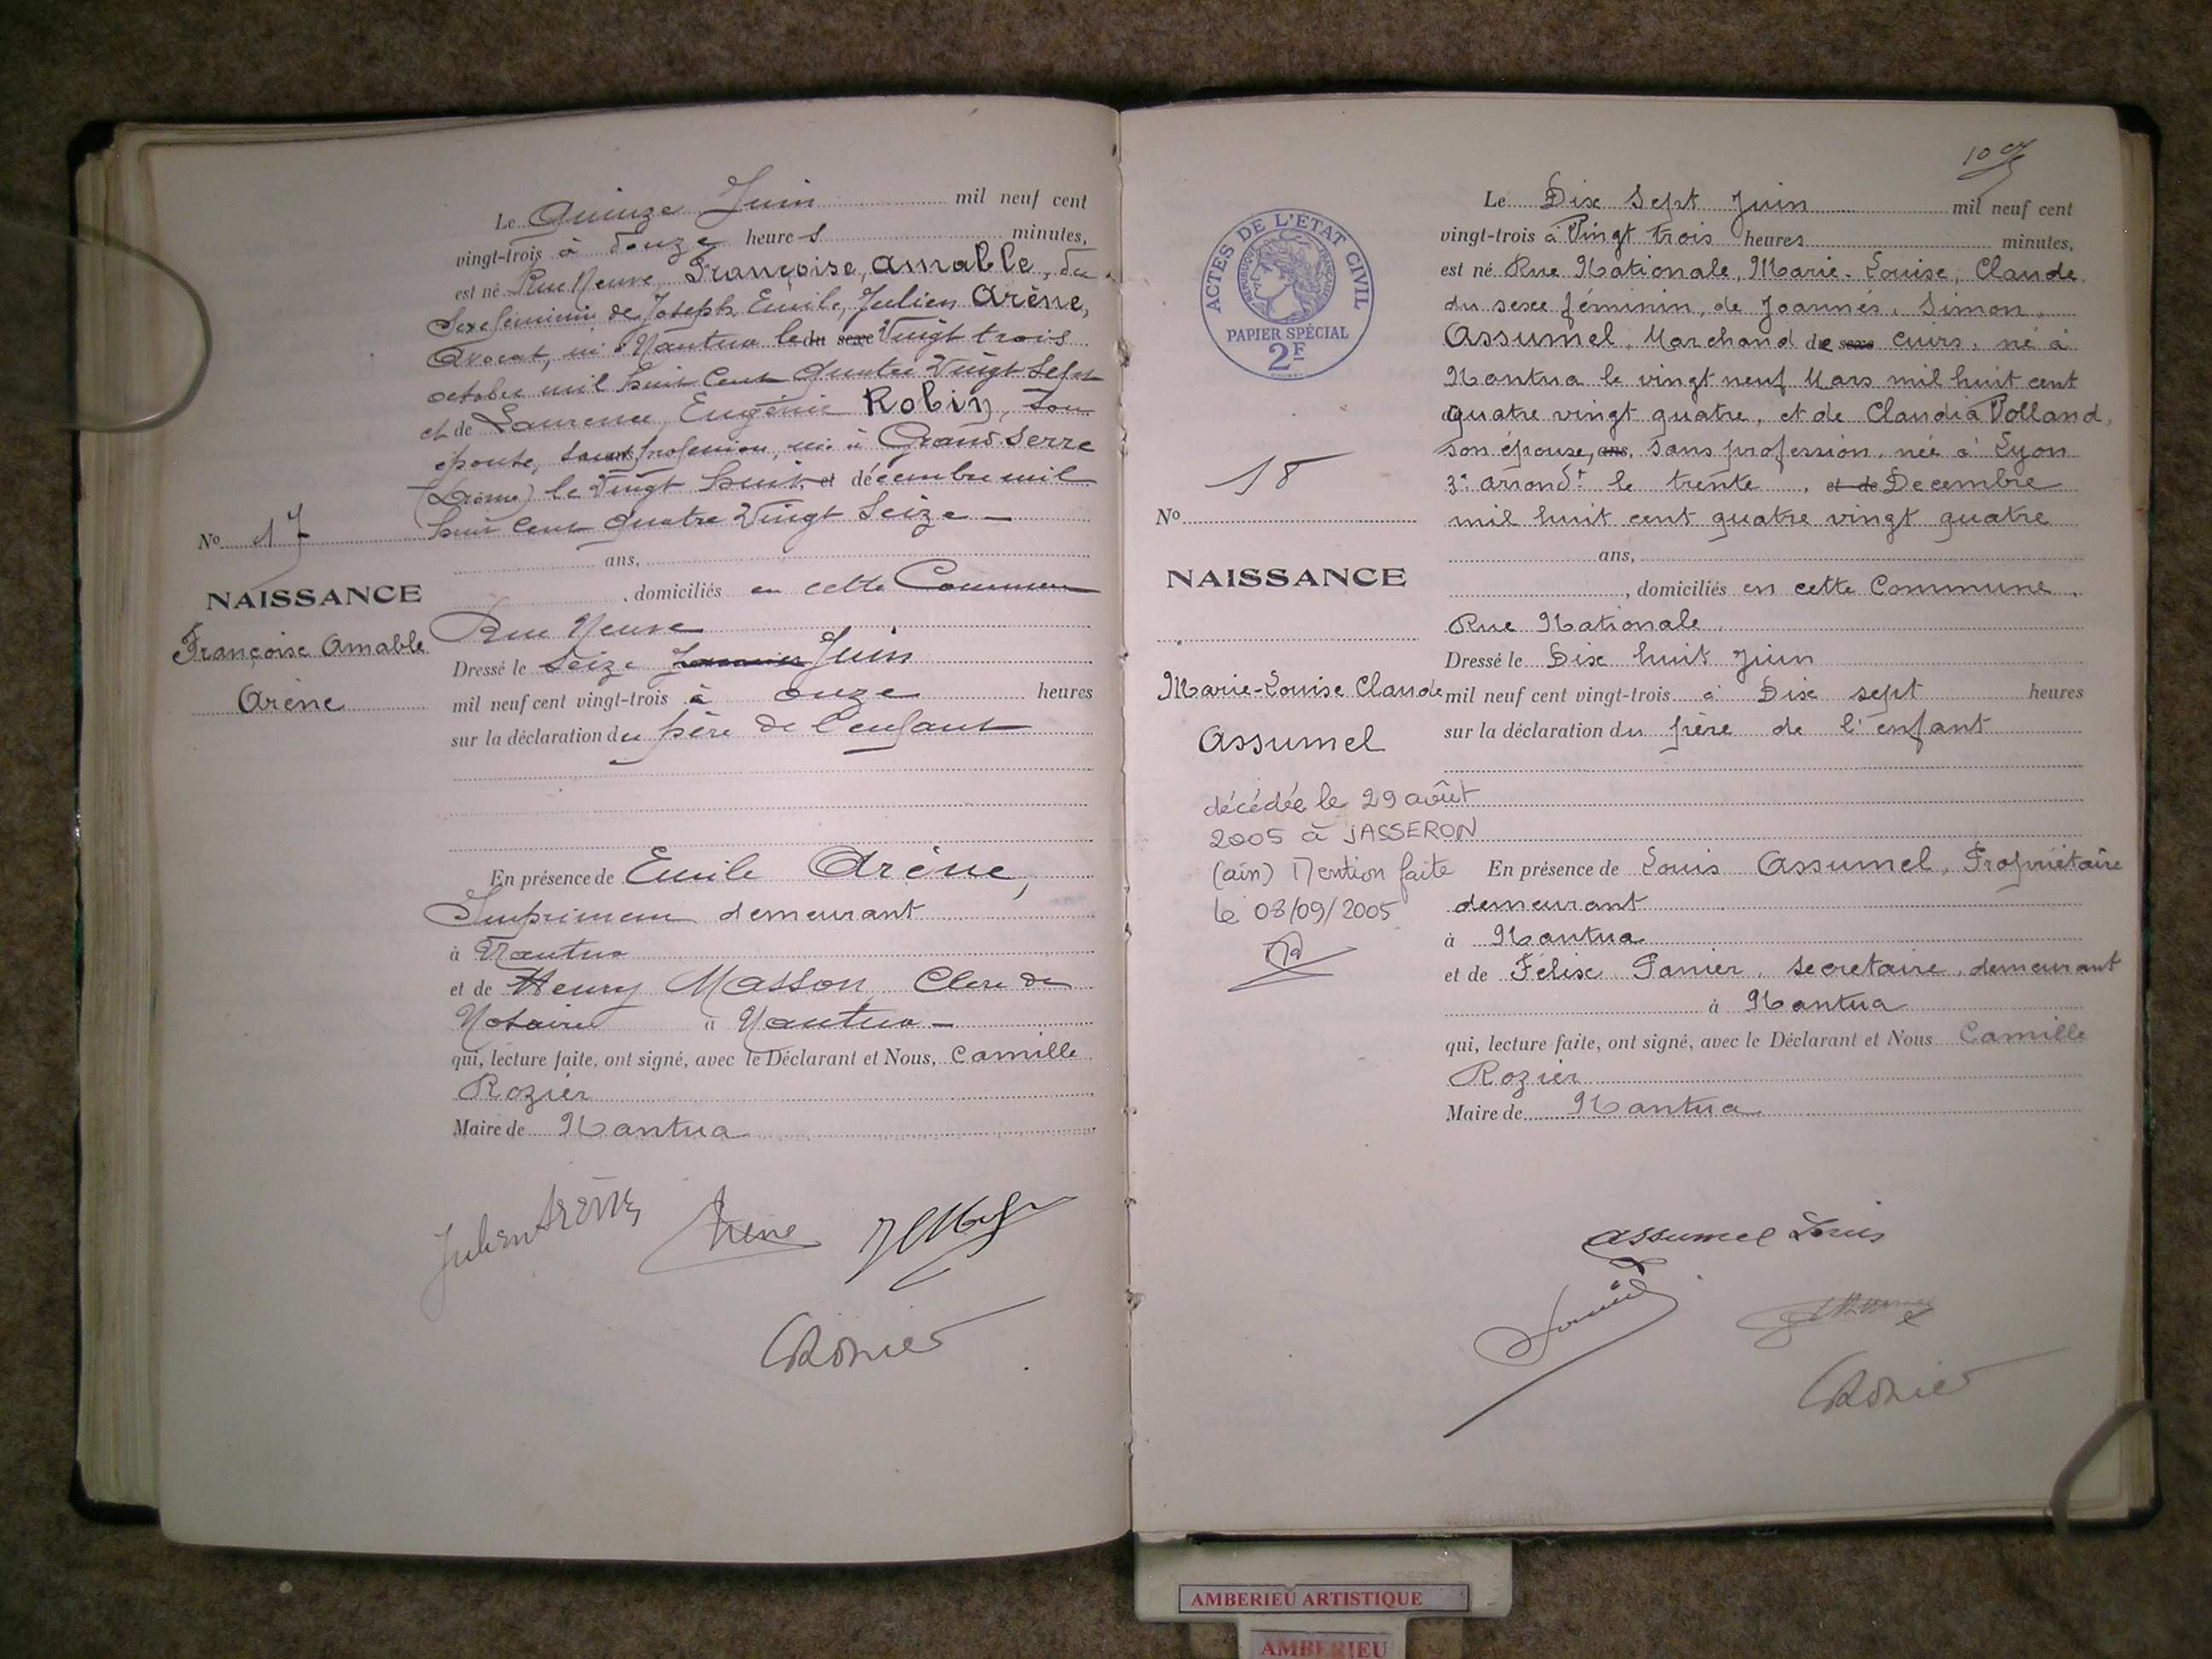 Le Quinze Juin mil neuf cent
vingt-trois à douze heures minutes,
est né Rue Neuve, Françoise, Amable, du
Sexe féminin, de Joseph, Emile, Julien Arène,
Avocat, né à Nantua le du sexe Vingt trois
octobre mil huit cent quatre Vingt Sept
et de Laurence, Eugénie Robin, son
épouse, sans profession, née à Grand Serre
(Drôme) le Vingt huit et décembre mil
huit cent quatre Vingt Seize
ans,
, domiciliés en cette Commune
Rue Neuve
Dressé le Seize Janvier Juin
mil neuf cent vingt-trois à onze heures
sur la déclaration du père de l'enfant
No 17
NAISSANCE
Françoise Amable
Arène
En présence de Emile Arène,
Imprimeur demeurant
à Nantua
et de Henry Masson, Clerc de
Notaire à Nantua
qui, lecture faite, ont signé, avec le Déclarant et Nous, Camille
Rozier
Maire de Nantua
Julien Arène
Arene
CRozier
109
ACTES DE L'ETAT CIVIL
REPUBLIQUE FRANÇAISE
PAPIER SPÉCIAL
2F
Le Dix Sept Juin mil neuf cent
vingt-trois à Vingt trois heures minutes,
est né Rue Nationale, Marie-Louise, Claude
du sexe féminin, de Joannès, Simon,
Assumel, Marchand de sexe cuirs, né à
Nantua le vingt neuf Mars mil huit cent
quatre vingt quatre, et de Claudia Volland,
son épouse, ans, sans profession, née à Lyon
3e arrondt le trente, et de Decembre
mil huit cent quatre vingt quatre
ans,
, domiciliés en cette Commune,
Rue Nationale,
Dressé le Dix huit Juin
mil neuf cent vingt-trois à Dix sept heures
sur la déclaration du père de l'enfant
No 18
NAISSANCE
Marie-Louise Claude
Assumel
décédée le 29 août
2005 à JASSERON
(ain) Mention faite
le 08/09/2005
En présence de Louis Assumel, Propriétaire
demeurant
à Nantua
et de Félix Panier, secretaire, demeurant
à Nantua
qui, lecture faite, ont signé, avec le Déclarant et Nous Camille
Rozier
Maire de Nantua
Assumel Louis
CRozier
AMBERIEU ARTISTIQUE
AMBERIEU